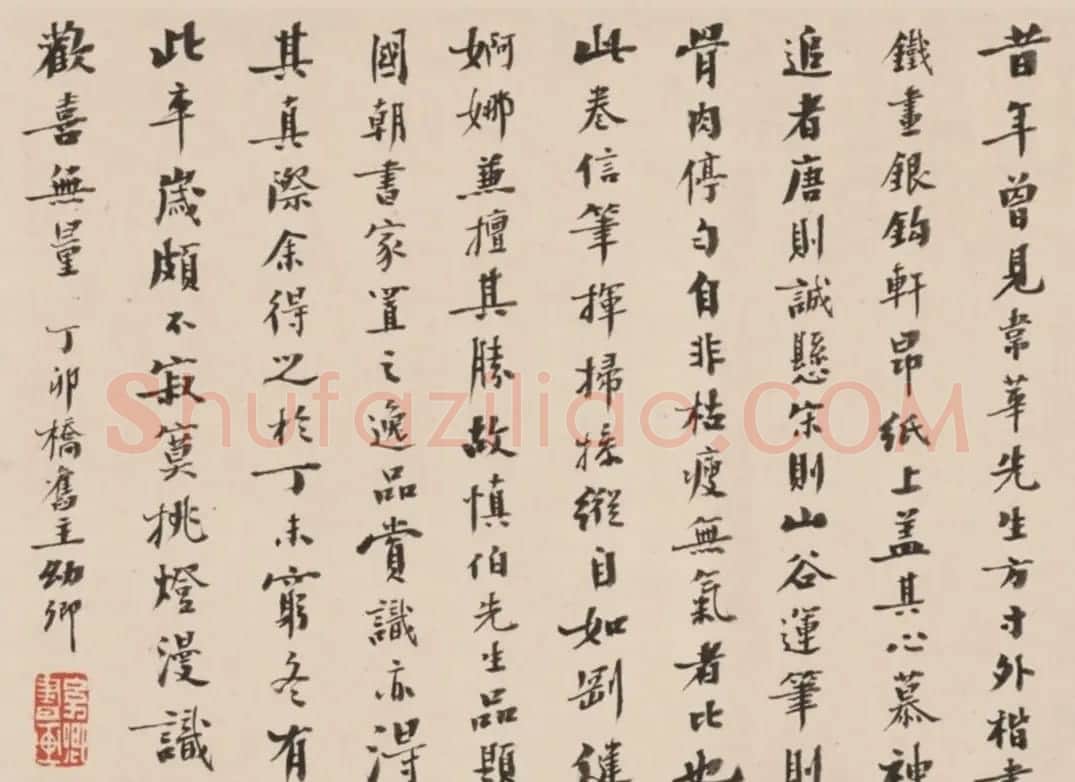 昔年曾見韋華先生方寸外楷書
鐵畫銀鈎軒昂紙上蓋其心慕神
追者唐則誠懸宋則山谷運筆則
骨肉停勻自非枯瘦無氣者比也
此卷信筆揮掃操縱自如剛健
婀娜兼擅其勝故慎伯先生品題
國朝書家置之逸品賞識亦得
其真際余得之於丁未窮冬有
此卒歲頗不寂寞挑燈漫識
歡喜無量 丁卯橋舊主幼卿
Shufaziliao.COM